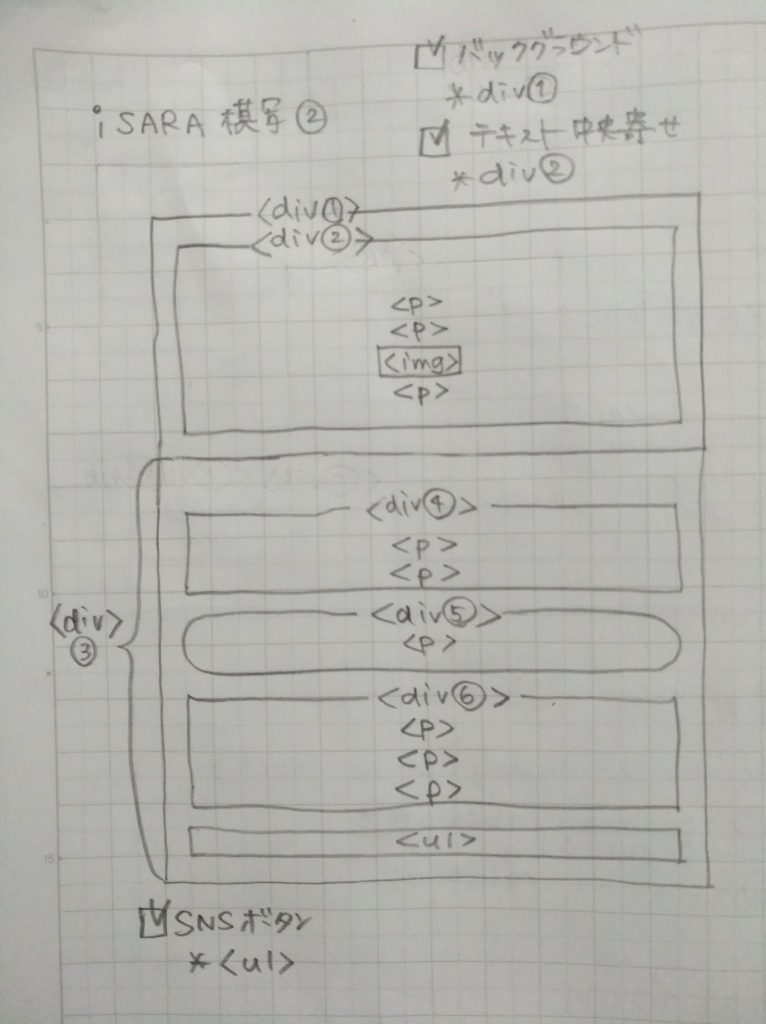 ☑ バックグラウンド
*div①
iSARA 模写②
☑ テキスト中央寄せ
*div②
<div①>
<div②>
<p>
<p>
<img>
<p>
<div④>
<p>
<p>
<div>
③
<div⑤>
<p>
<div⑥>
<p>
<p>
<p>
<ul>
☑ SNSボタン
*<ul>
5
10
15